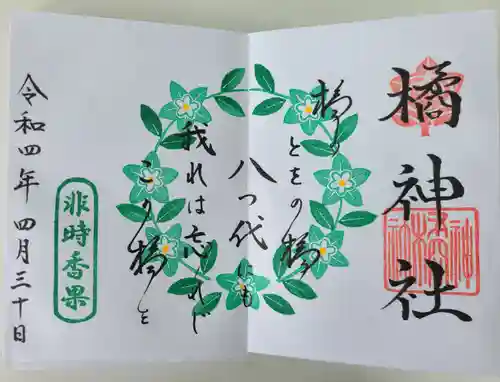 橘神社
橘の
とをの橘
八つ代にも
我れは忘れじ
この橘を
非時香果
令和四年四月三十日